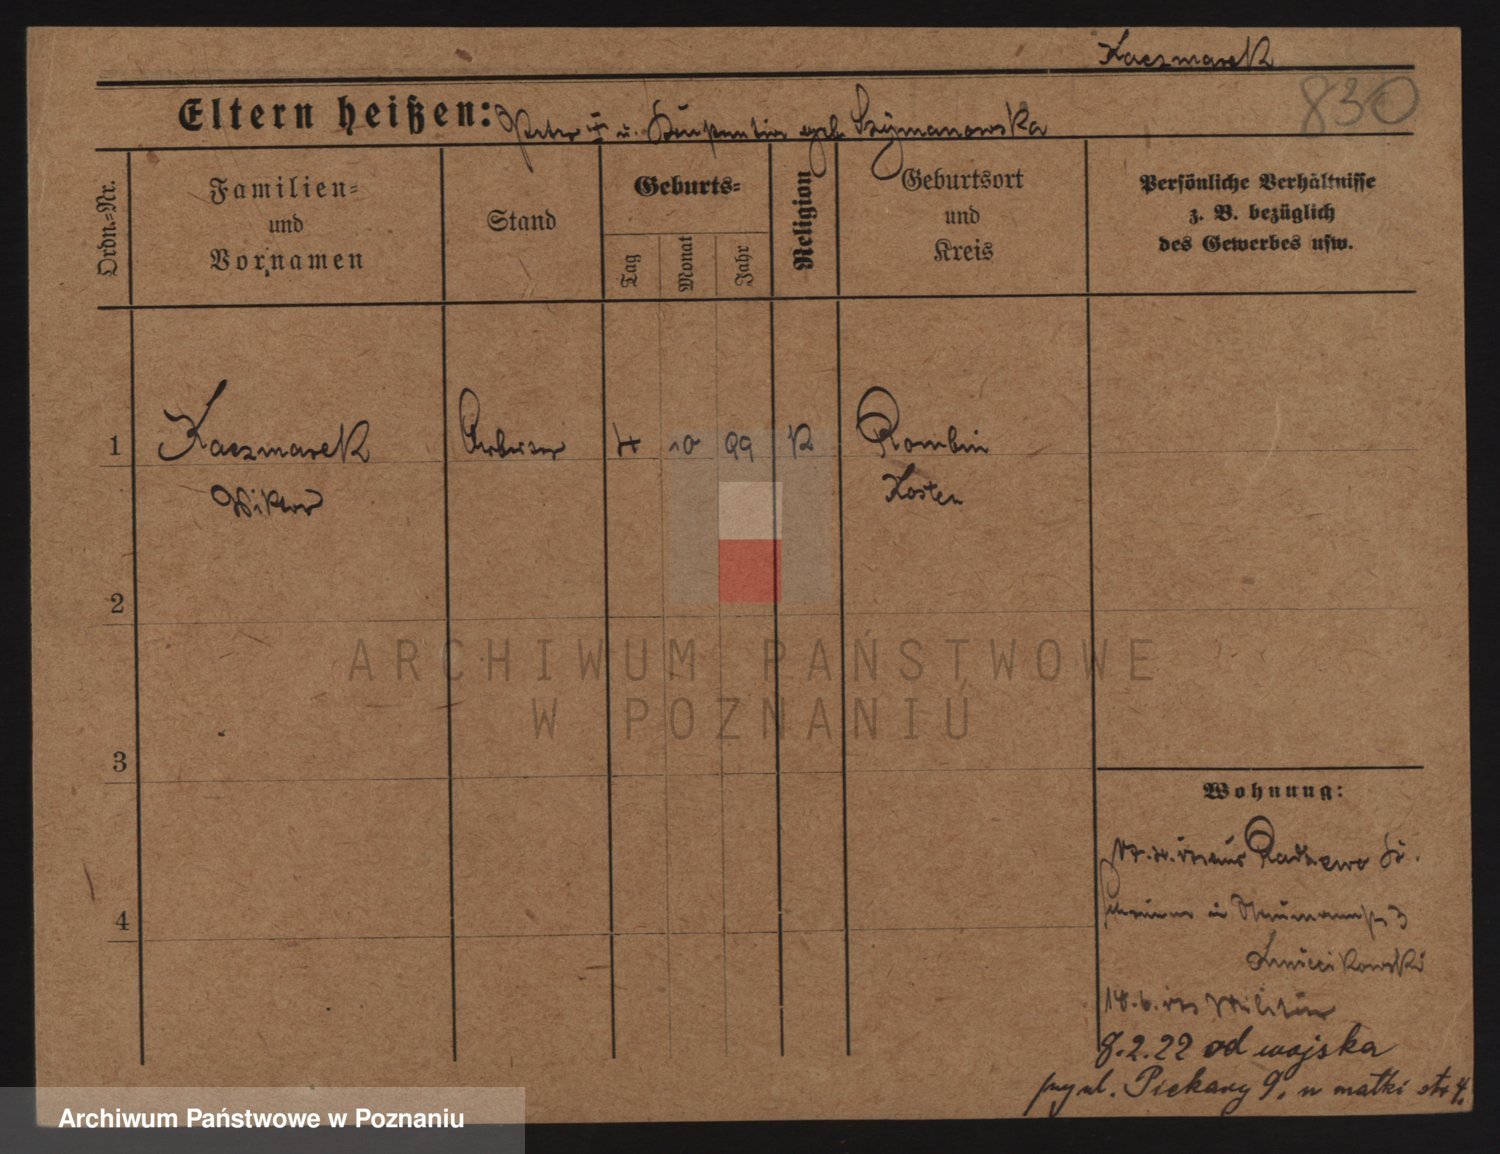 Kaczmarek
830
Eltern heißen: Peter u. geb. Szymanowska
Ordn.-Nr.
Familien-
und
Vornamen
Stand
Geburts-
Tag
Monat
Jahr
Religion
Geburtsort
und
Kreis
Persönliche Verhältnisse
z. B. bezüglich
des Gewerbes usw.
1 Kaczmarek Arbeiter 4 10 99 K Rombin
Wiktor Kosten
2
3
4
ARCHIWUM PAŃSTWOWE
W POZNANIU
Wohnung:
Radzewo
in Naumannstr 3
Militär
8.2.22 od wojska
przy ul. Piekary 9, u matki str 4.
Archiwum Państwowe w Poznaniu